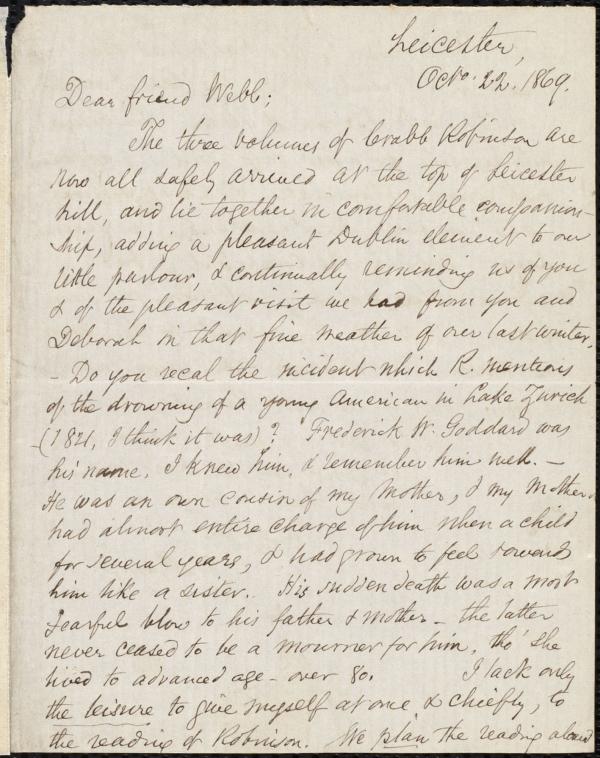 Leicester,
Octo. 22. 1869.
Dear friend Webb;
The three volumes of Crabb Robinson are
now all safely arrived at the top of Leicester
hill, and lie together in comfortable companion-
ship, adding a pleasant Dublin element to our
little parlour, & continually reminding us of you
& of the pleasant visit we had from you and
Deborah in that fine weather of our last winter.
- Do you recal the incident which R. mentions
of the drowning of a young American in Lake Zurich
(1821, I think it was)? Frederick W. Goddard was
his name. I knew him, & remember him well. -
He was an own cousin of my Mother, & my Mother
had almost entire charge of him when a child
for several years, & had grown to feel towards
him like a sister. His sudden death was a most
fearful blow to his father & mother - the latter
never ceased to be a mourner for him, tho' she
lived to advanced age - over 80. I lack only
the leisure to give myself at once & chiefly, to
the reading of Robinson. We plan the reading aloud